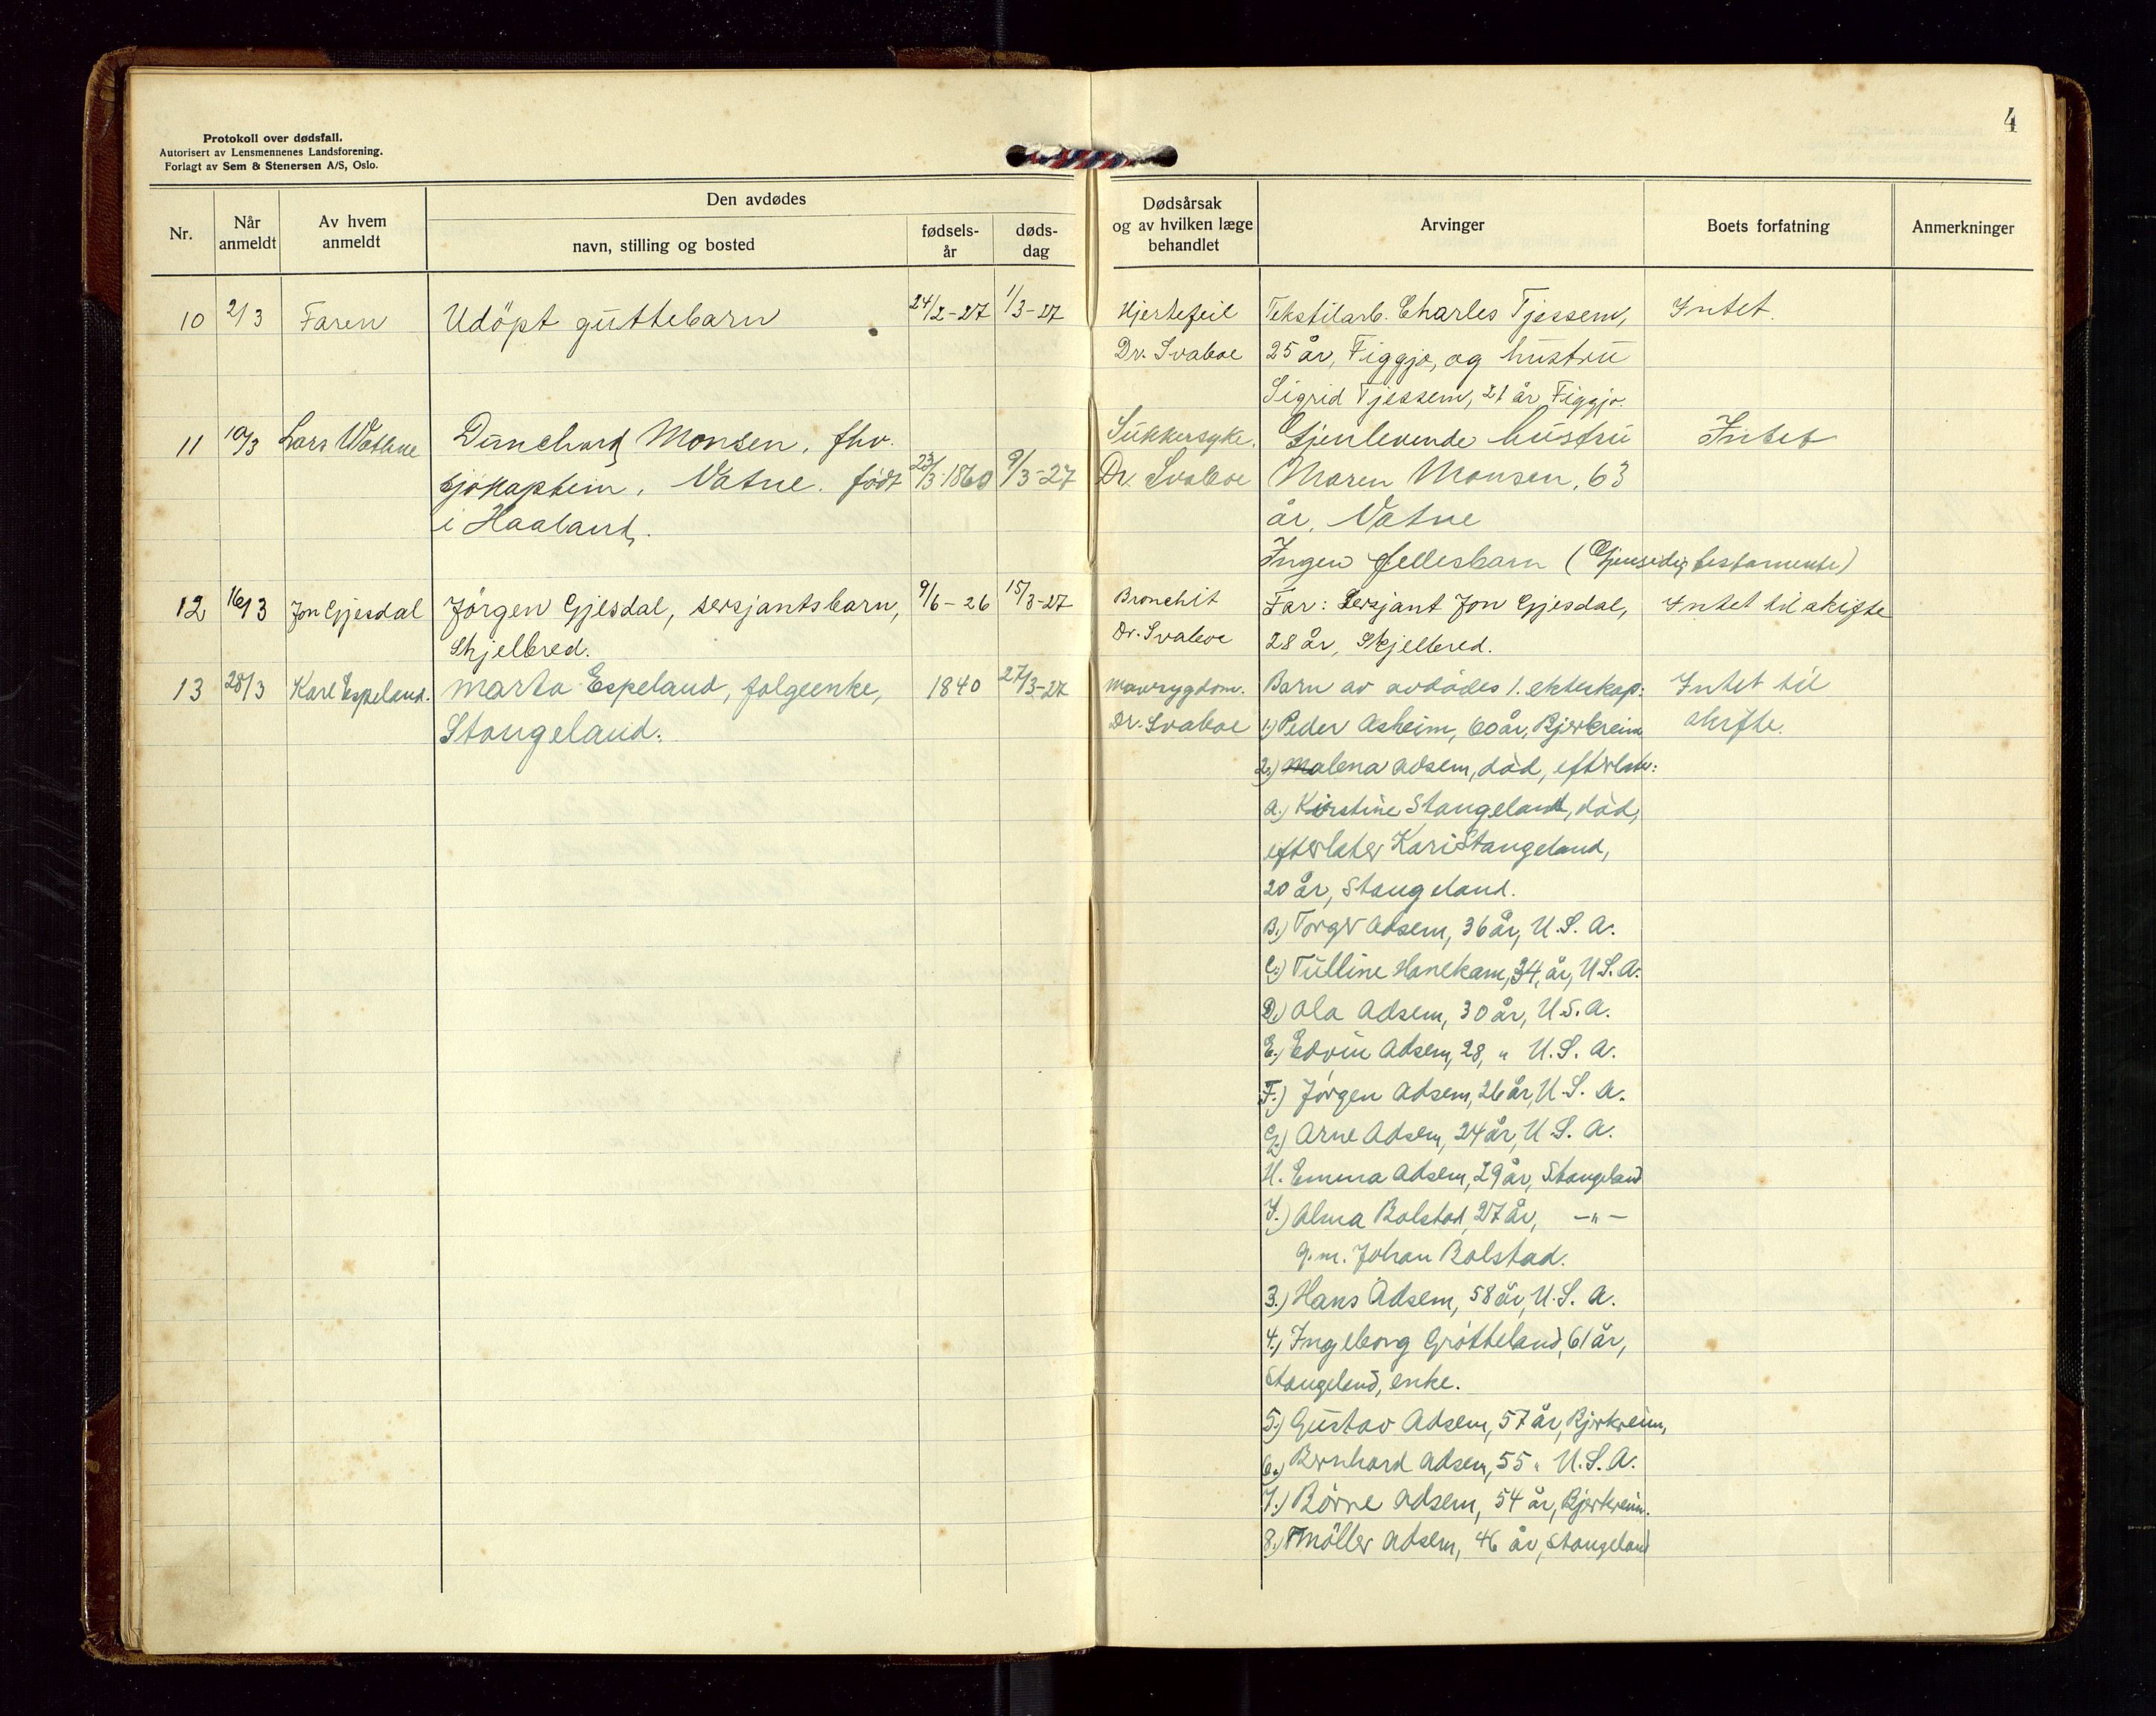 Protokoll over dødsfall.
Autorisert av Lensmennenes Landsforening.
Forlagt av Sem & Stenersen A/S, Oslo.
4
Nr.
Når anmeldt
Av hvem anmeldt
Den avdødes
navn, stilling og bosted
fødsels-år
døds-dag
Dødsårsak og av hvilken læge behandlet
Arvinger
Boets forfatning
Anmerkninger
10 2/3 Faren Udöpt guttebarn 24/2-27 1/3-27
Hjertefeil Tekstilarb. Charles Tjessem, Intet.
Dr. Svaboe 25 år, Figgjo, og hustru
Sigrid Tjessem, 21 år Figgjo.
11 10/3 Lars Watne Monsen, fhv.
Sukkersyke. Gjenlevende hustru Intet
sjökaptein, Vatne. født 23/3-1860 9/3-27
Dr. Svaboe Maren Monsen, 63
i Haaland.
år, Vatne
Ingen fellesbarn (Gjensidig testamente)
12 16/3 Jon Gjesdal Jörgen Gjesdal, sersjantsbarn, 9/6-26 15/3-27
Bronchit Far: Sersjant Jon Gjesdal, Intet til skifte
Skjelbred.
Dr. Svaboe 28 år, Skjelbred.
13 28/3 Karl Espeland. Marta Espeland, folgeenke, 1840 27/3-27
Mavesygdom. Barn av avdødes 1. ekteskap: Intet til
Stangeland.
Dr. Svaboe 1.) Peder Asheim, 60 år, Bjerkreim skifte.
2.) Malena Adsem, død, efterlater:
A.) Kirstine Stangeland, død,
efterlater Kari Stangeland,
20 år, Stangeland.
B.) Torger Adsem, 36 år, U.S.A.
C.) Tulline Hanekam, 34, år, U.S.A.
D.) Ola Adsem, 30 år, U.S.A.
E.) Edvin Adsem, 28, " U.S.A.
F.) Jörgen Adsem, 26 år, U.S.A.
G.) Arne Adsem, 24 år, U.S.A.
H. Emma Adsem, 29 år, Stangeland
I.) Alma Bolstad, 27 år, -"-
g.m. Johan Bolstad.
3.) Hans Adsem, 58 år, U.S.A.
4.) Ingeborg Grötteland, 61 år,
Stangeland, enke.
5.) Gustav Adsem, 57 år, Bjerkreim,
6.) Bernhard Adsem, 55 " U.S.A.
7.) Börre Adsem, 54 år, Bjerkreim.
8.) Möller Adsem, 46 år, Stangeland